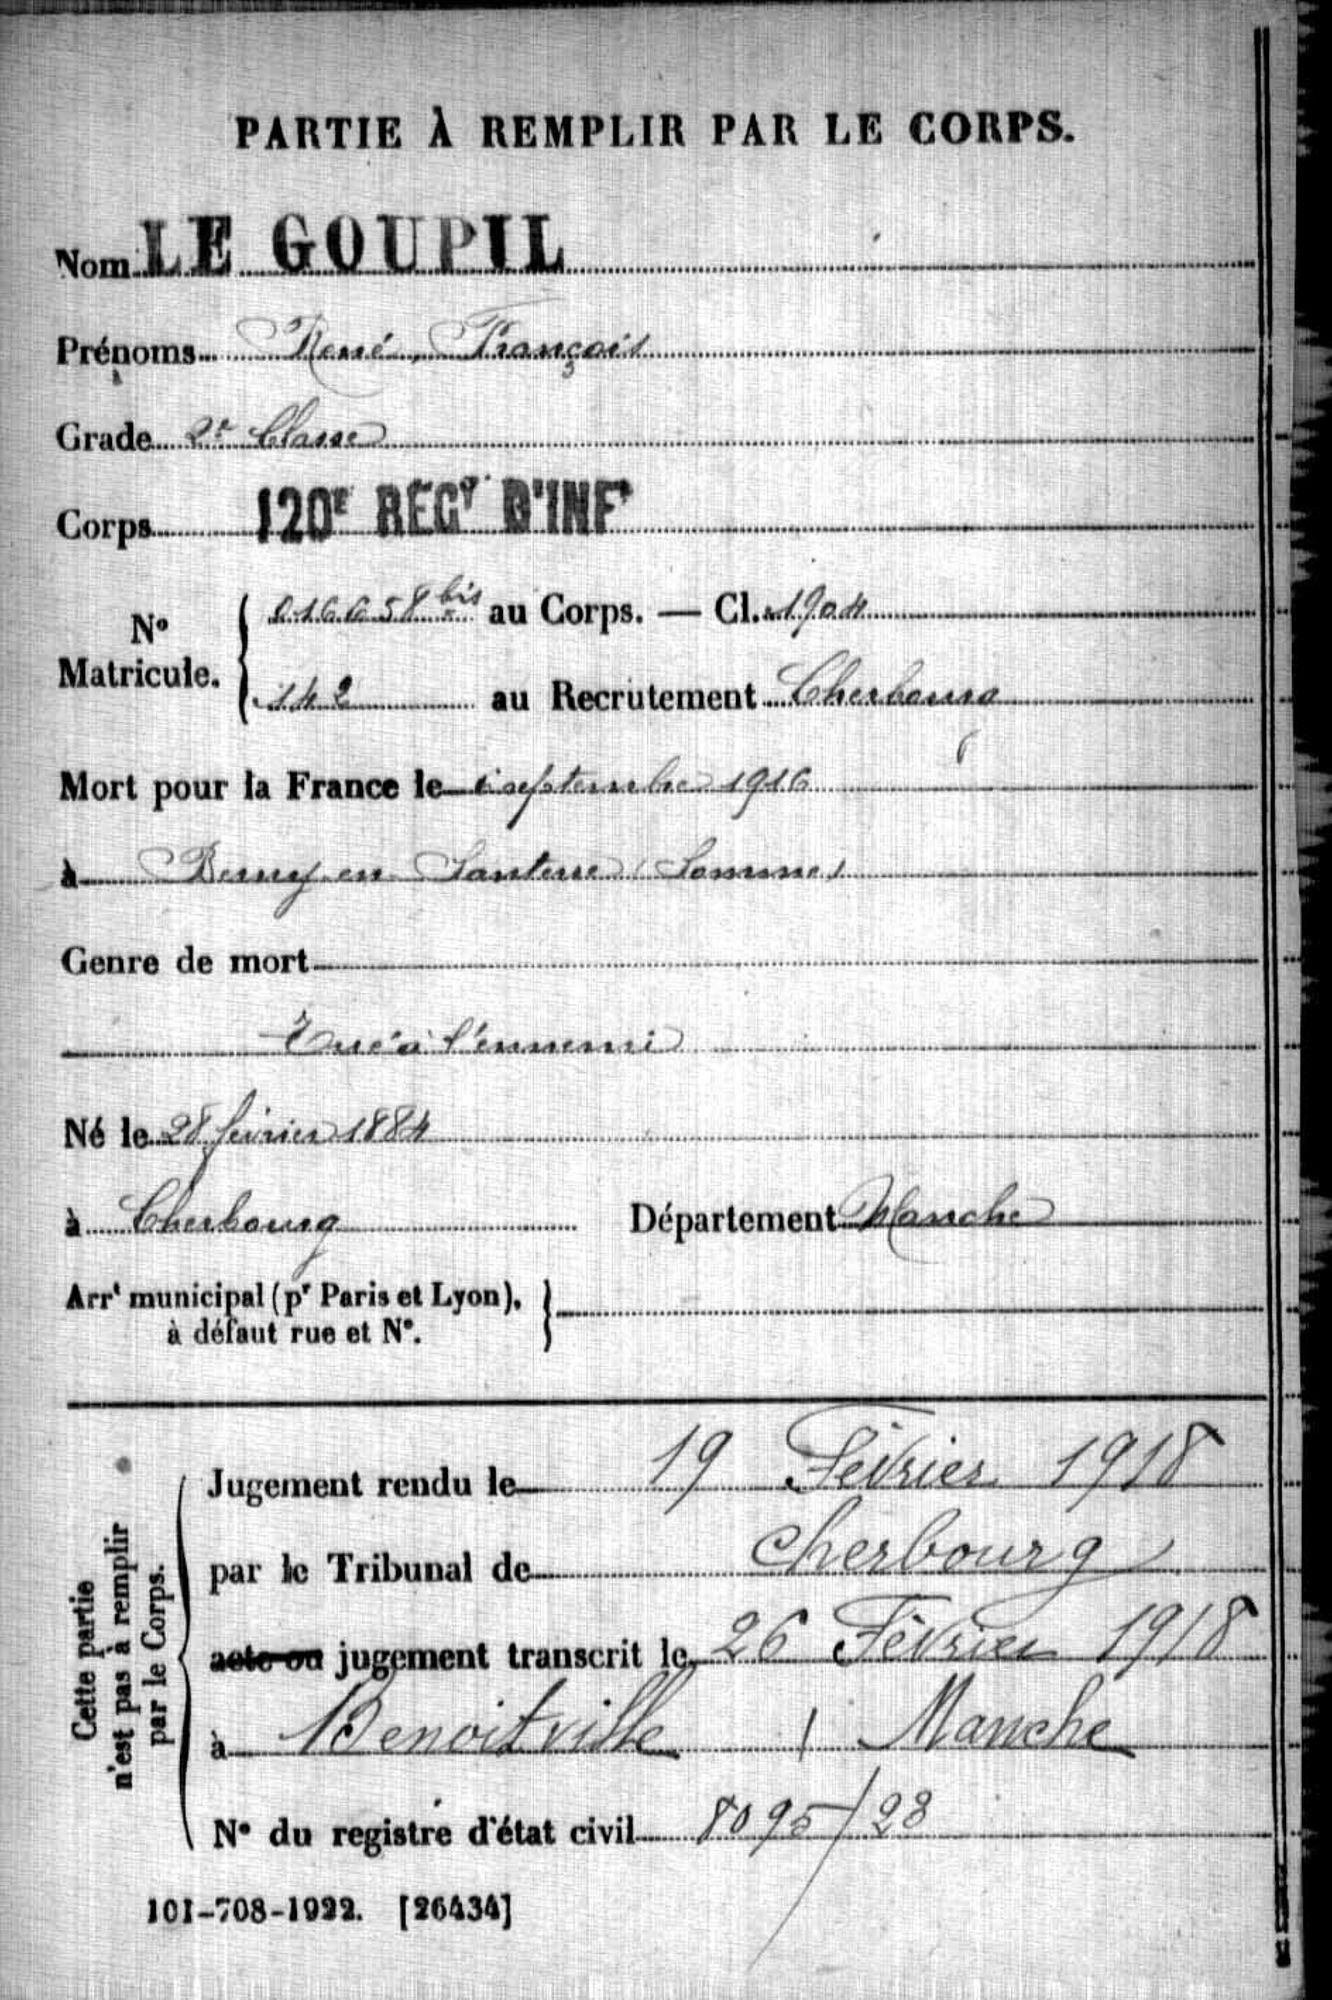 PARTIE À REMPLIR PAR LE CORPS.
Nom LE GOUPIL
Prénoms René, François
Grade 2e Classe
Corps 120E REGT D'INFIE
No Matricule. 016658 bis au Corps. — Cl. 1904
142 au Recrutement Cherbourg
Mort pour la France le septembre 1916
à Berny-en-Santerre (Somme)
Genre de mort
Tué à l'ennemi
Né le 28 février 1884
à Cherbourg Département Manche
Arrt municipal (pr Paris et Lyon), à défaut rue et No.
Cette partie n'est pas à remplir par le Corps.
Jugement rendu le 19 Février 1918
par le Tribunal de Cherbourg
acte ou jugement transcrit le 26 Février 1918
à Benoitville / Manche
No du registre d'état civil 8095/28
101-708-1922. [26434]